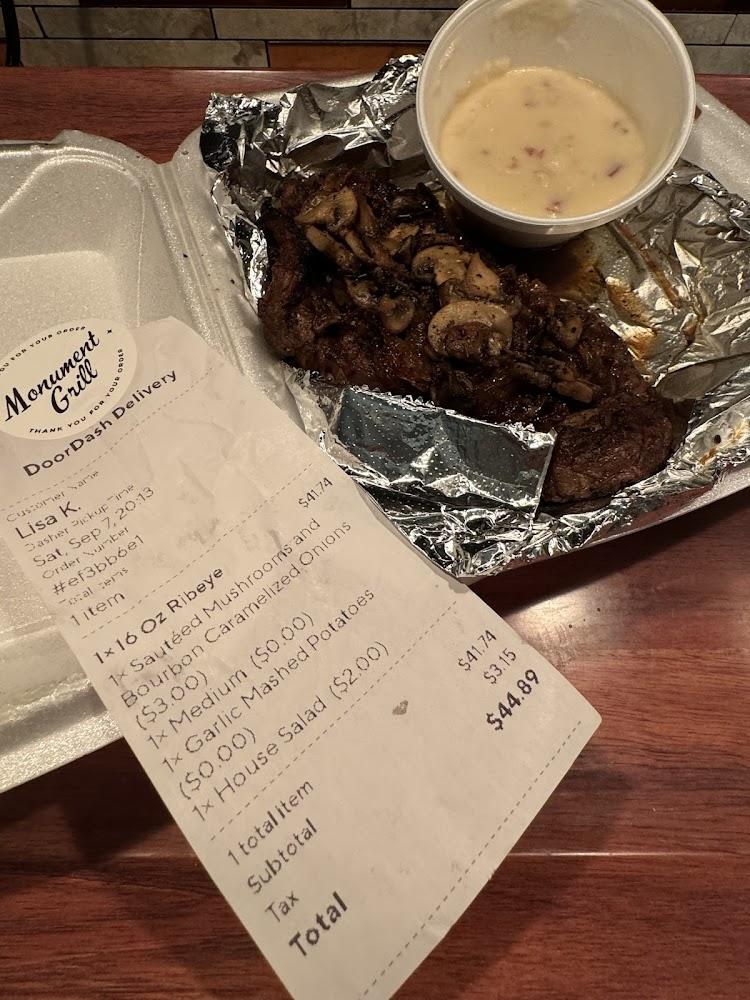 THANK YOU FOR YOUR ORDER
Monument
Grill
THANK YOU FOR YOUR ORDER
DoorDash Delivery
Customer Name
Lisa K.
Dasher Pickup Time
Sat, Sep 7, 20:13
Order Number
#ef3bb6e1
Total Items
1 item
1× 16 Oz Ribeye $41.74
1× Sautéed Mushrooms and
Bourbon Caramelized Onions
($3.00)
1× Medium ($0.00)
1× Garlic Mashed Potatoes
($0.00)
1× House Salad ($2.00)
1 total item
Subtotal $41.74
Tax $3.15
Total $44.89